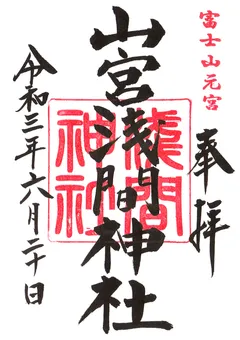 富士山元宮
奉拝
山宮浅間神社
令和三年六月二十日
神社